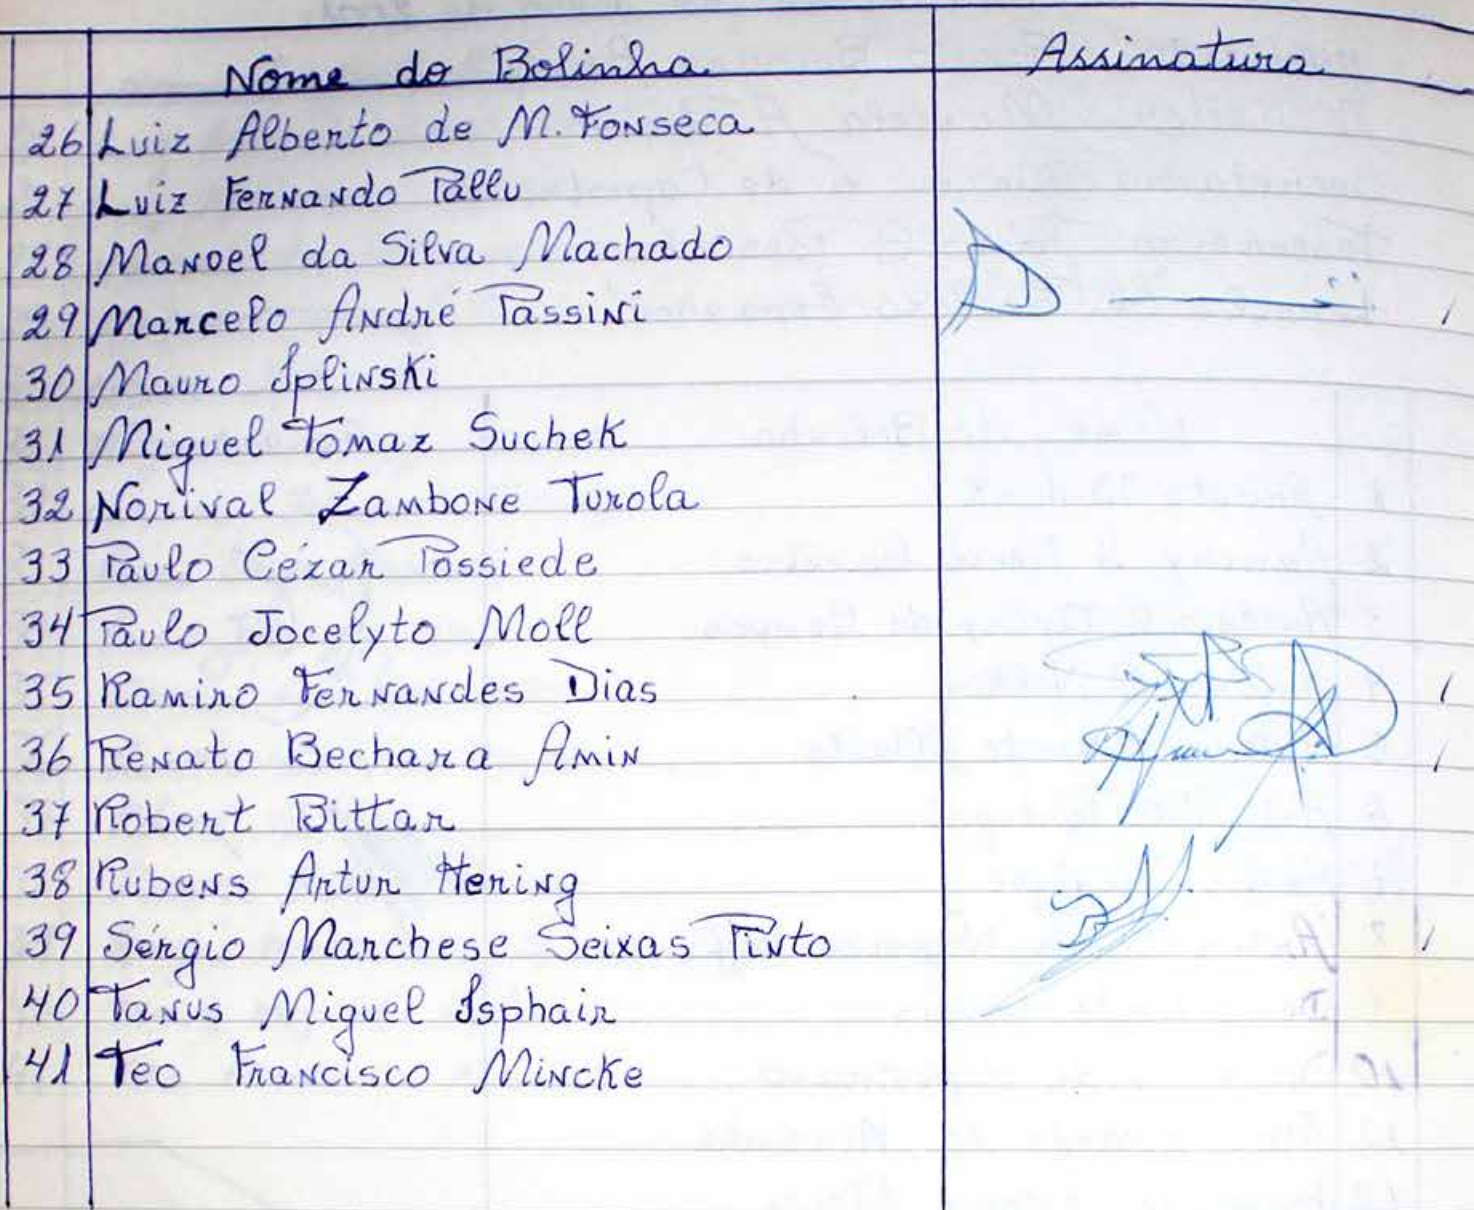 Nome do Bolinha Assinatura
26 Luiz Alberto de M. Fonseca
27 Luiz Fernando Pallu
28 Manoel da Silva Machado
29 Marcelo André Passini
30 Mauro Splinski
31 Miguel Tomaz Suchek
32 Norival Zambone Turola
33 Paulo Cézar Possiede
34 Paulo Jocelyto Moll
35 Ramiro Fernandes Dias
36 Renato Bechara Amin
37 Robert Bittar
38 Rubens Artur Hering
39 Sérgio Marchese Seixas Pinto
40 Tanus Miguel Isphair
41 Teo Francisco Mincke